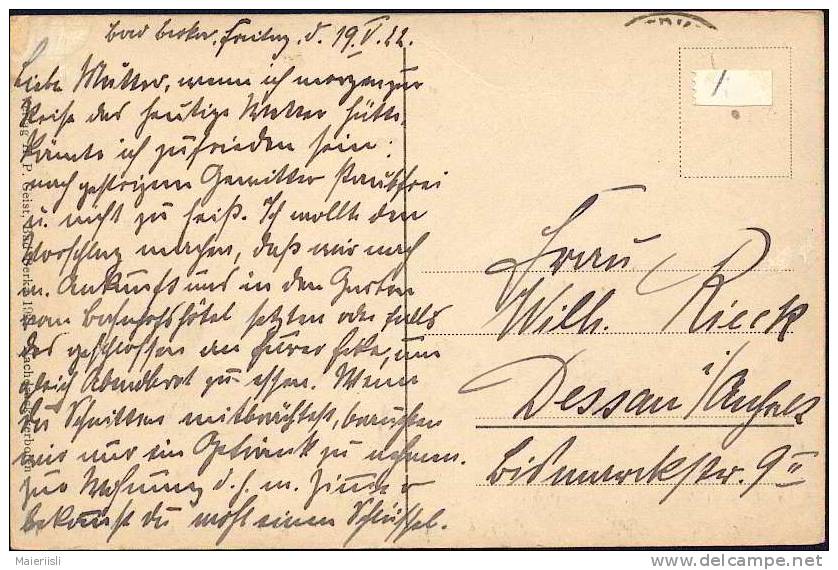 Bad Berka, Freitag, d. 19. V. 22.
Liebe Mutter, wenn ich morgen zur
Reise das heutige Wetter hätte,
könnte ich zufrieden sein:
nach gestrigem Gewitter staubfrei
u. nicht zu heiß. Ich wollte den
Vorschlag machen, daß wir nach
m. Ankunft uns in den Garten
vom Bahnhofshôtel setzten oder falls
das geschlossen an Ecke, um
gleich Abendbrot zu essen. Wenn
du Schnitten mitbrächtest, brauchten
wir nur ein Getränk zu nehmen.
Zur Wohnung d. h. m. Zimmer
bekommst du wohl einen Schlüssel.
Frau
Wilh. Rieck
Dessau i/Anhalt
Bismarckstr. 9 II
P. Geist, Bad Berka
1
Maierisli
www.delcampe.net